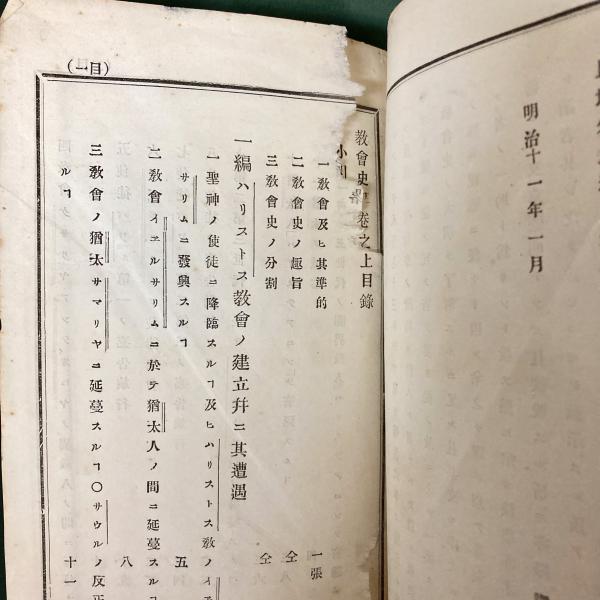 明治十一年一月
(一目)
教會史畧卷之上目錄
小引
一敎會及ヒ其準的 一張
二敎會史ノ趣旨 仝
三敎會史ノ分割 仝
一編ハリストス敎會ノ建立幷ニ其遭遇
一聖神ノ使徒ニ降臨スルヿ及ヒハリストス敎ノイエ
サリムニ發興スルヿ 五
二敎會イエルサリムニ於テ猶太人ノ間ニ延蔓スルヿ 八
三敎會ノ猶太サマリヤニ延蔓スルヿ〇サウルノ反正
スルヿ 十一